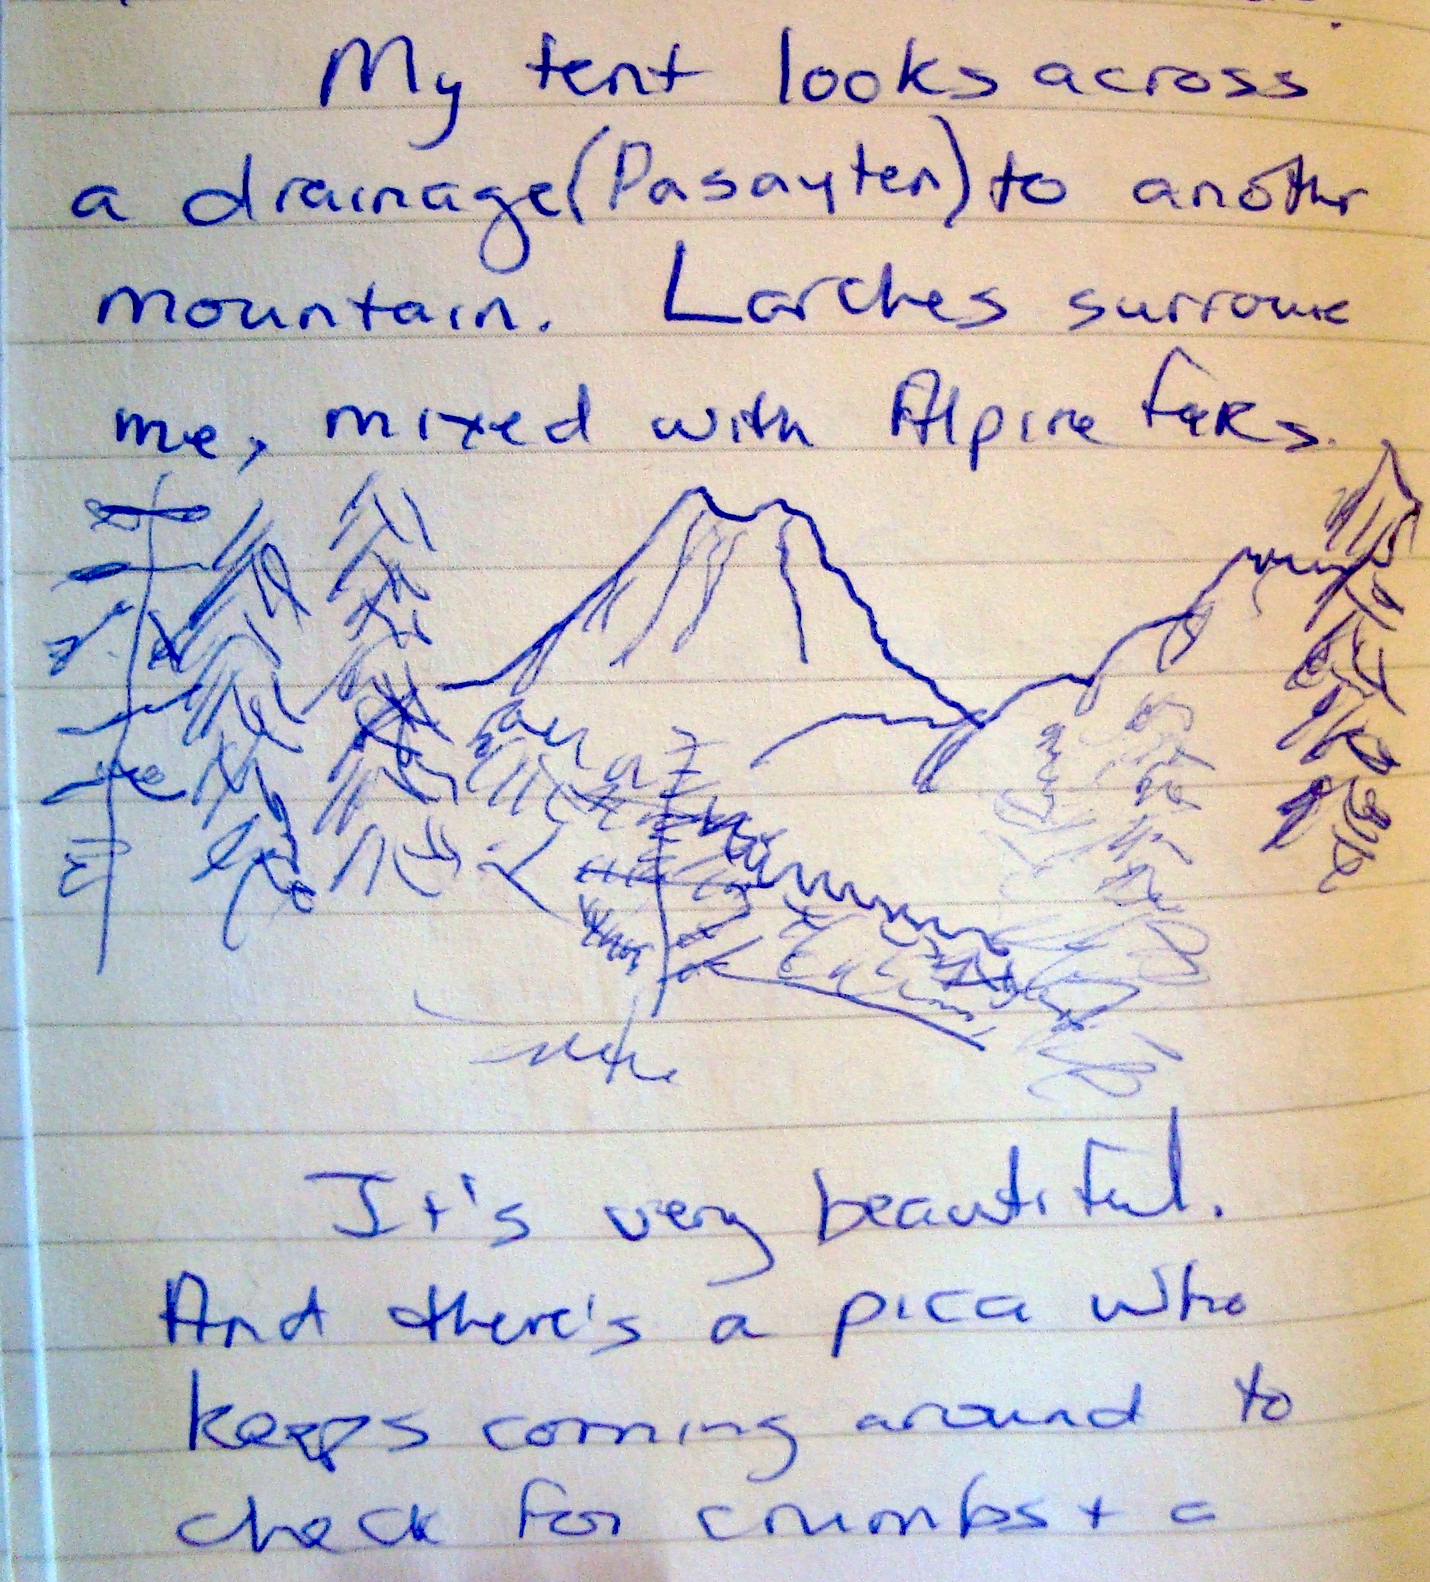 My tent looks across
a drainage (Pasayten) to another
mountain. Larches surround
me, mixed with Alpine firs.
It's very beautiful.
And there's a pica who
keeps coming around to
check for crumbs + a